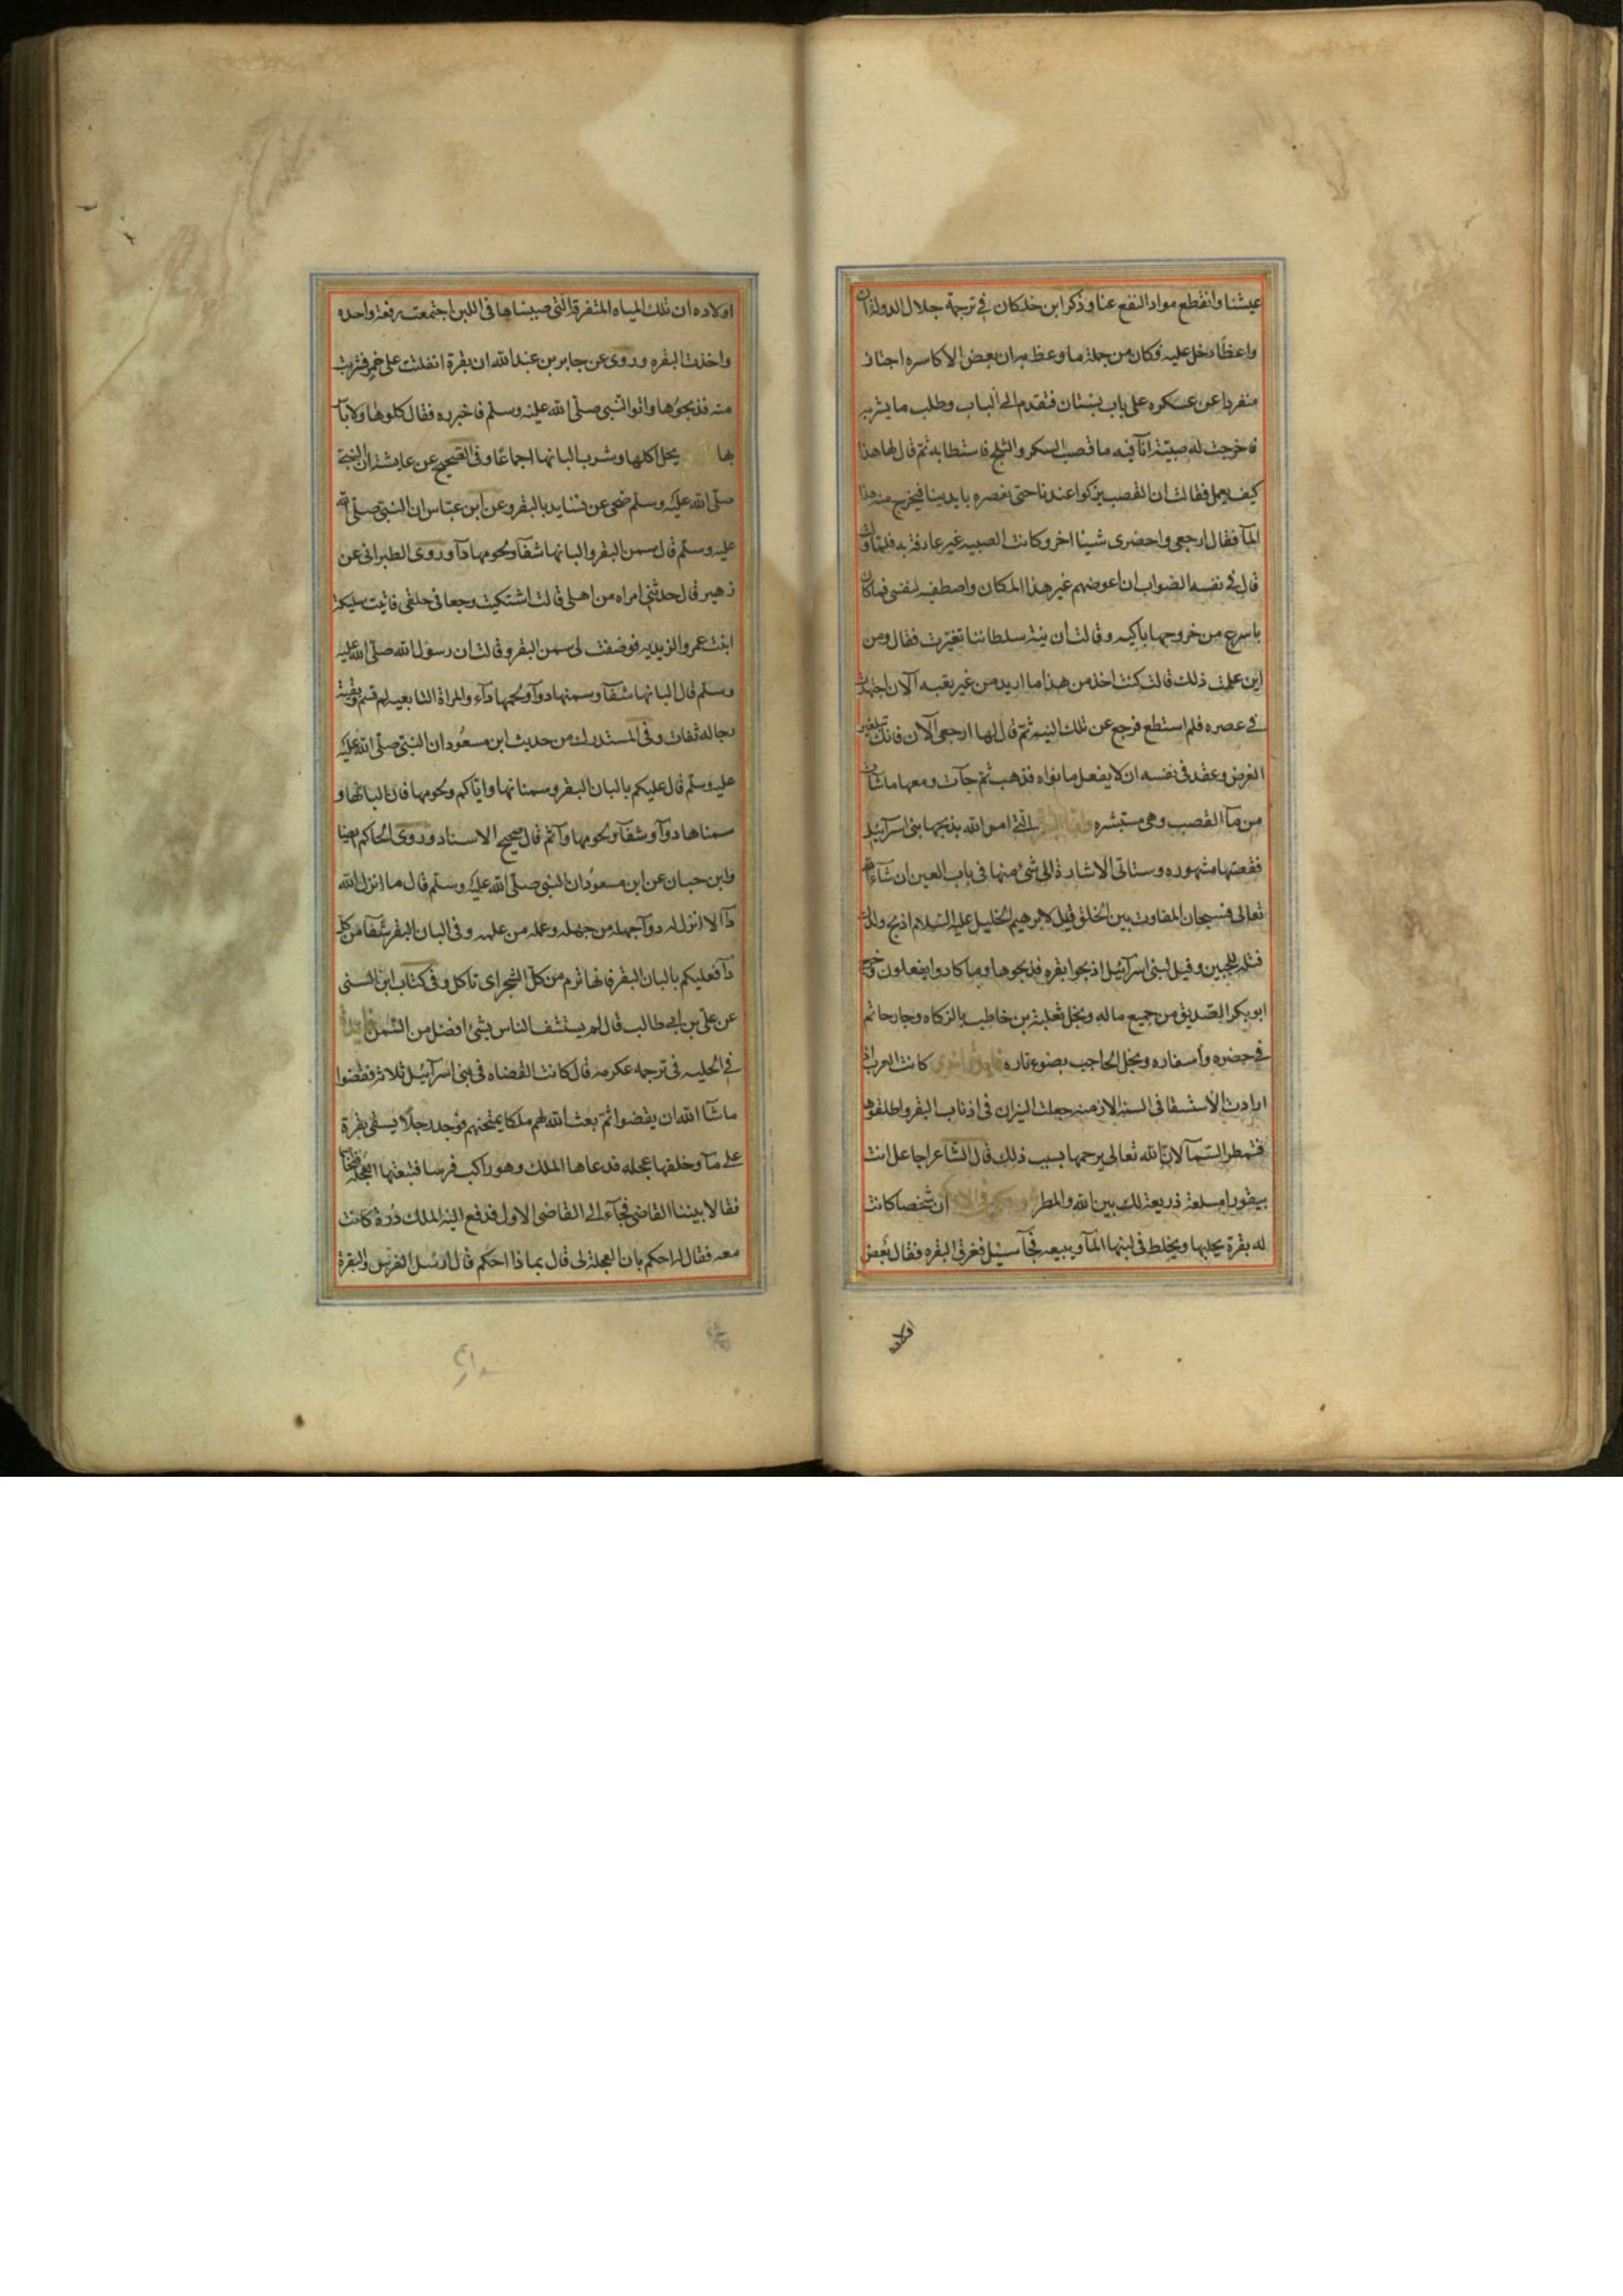 عيشنا وانقطع مواد النفع عنا وذكر ابن خلكان في ترجمة جلال الدولة ان
واعظا دخل عليه وكان من جملة ما وعظ به ان بعض الاكاسره اجتاز
منفردا عن عسكره على باب بستان فتقدم الى الباب وطلب ما يشربه
فاخرجت له صبية انآ فيه ما قصب السكر والثلج فاستطابه ثم قال لها هذا
كيف يعمل فقالت ان القصب يزكوا عندنا حتى نعصره بايدينا فيخرج منه هذا
المآ فقال ارجعي واحضرى شيئا اخر وكانت الصبيه غير عارفة به فلما ولت
قال في نفسه الصواب ان اعوضهم غير هذا المكان واصطفيه لنفسى فما كان
باسرع من خروجها باكيه وقالت ان نية سلطاننا تغيرت فقال ومن
اين علمت ذلك قالت كنت اخذ من هذا ما اريد من غير تعب والآن اجتهدت
في عصره فلم استطع فرجع عن تلك النيه ثم قال لها ارجعى الآن فانك تبلغين
الغرض وعقد فى نفسه ان لا يفعل ما نواه فذهبت ثم جآت ومعها ما شات
من مآ القصب وهى مستبشره التى امر الله بذبحها بنى اسرآئيل
فقصتها مشهوره وستاتى الاشارة الى شئ منها فى باب العين ان شآء الله
تعالى فسبحان المفاوت بين الخلق قيل لابرهيم الخليل عليه السلام اذبح ولدك
فتله للجبين وقيل لبنى اسرآئيل اذبحوا بقره فذبحوها وما كادوا يفعلون وخرج
ابو بكر الصديق من جميع ماله وبخل ثعلبة بن حاطب بالزكاه وجاد حاتم
في حضره واسفاره وبخل الحاجب بضوء ناره كانت العرب اذا
ارادت الاستسقا فى السنه الازمنه جعلت النيران فى اذناب البقر واطلقوها
فتمطر السمآ لان الله تعالى يرحمها بسبب ذلك قال الشاعر اجاعل انت
بيقورا مسلعة ذريعة لك بين الله والمطر ان شخصا كانت
له بقرة يحلبها ويخلط فى لبنها المآ ويبيعه فجآ سيل فغرق البقره فقال بعض
اولاد
اولاده ان تلك المياه المتفرقة التى صببناها فى اللبن اجتمعت دفعة واحده
واخذت البقره وروى عن جابر بن عبد الله ان بقرة انفلتت على خمر فشربت
منه فذبحوها واتوا النبي صلى الله عليه وسلم فاخبره فقال كلوها ولا باس
بها يحل اكلها وشرب البانها اجماعا وفى الصحيح عن عايشة ان النبي
صلى الله عليه وسلم ضحى عن نسايه بالبقر وعن ابن عباس ان النبي صلى الله
عليه وسلم قال سمن البقر والبانها شفآ ولحومها دآ وروى الطبرانى عن
زهير قال حدثتنى امراه من اهلى قالت اشتكيت وجعا فى حلقى فاتيت مليكة
ابنت عمرو الزيديه فوضفت لى سمن البقر وقالت ان رسول الله صلى الله عليه
وسلم قال البانها شفآ وسمنها دوآ ولحمها دآء والمراة التابعيه لم تسم وبقية
رجاله ثقات وفى المستدرك من حديث ابن مسعود ان النبي صلى الله عليه
عليه وسلم قال عليكم بالبان البقر وسمنانها واياكم ولحومها فان البانها و
سمنانها دوآ وشفآ ولحومها دآ ثم قال صحيح الاسناد وروى الحاكم ايضا
وابن حبان عن ابن مسعود ان النبي صلى الله عليه وسلم قال ما انزل الله
دآ الا انزل له دوآ جهله من جهله وعلمه من علمه وفى البان البقر شفآ من كل
دآ فعليكم بالبان البقر فانها ترم من كل الشجر اى تاكل وفى كتاب ابن السنى
عن على بن ابى طالب قال لم يستشف الناس بشئ افضل من السمن فايدة
في الحليه فى ترجمه عكرمه قال كانت القضاه فى بنى اسرآئيل ثلاثه فقضوا
ماشآ الله ان يقضوا ثم بعث الله لهم ملكا يمتحنهم فوجد رجلا يسقى بقرة
على مآ وخلفها عجله فدعاها الملك وهو راكب فرسا فتبعتها العجله فتخاصما
فقالا بيننا القاضى فجآء الى القاضى الاول فدفع اليه الملك درة كانت
معه فقال له احكم بان العجلة لى قال بماذا احكم قال ارسل الفرس والبقرة